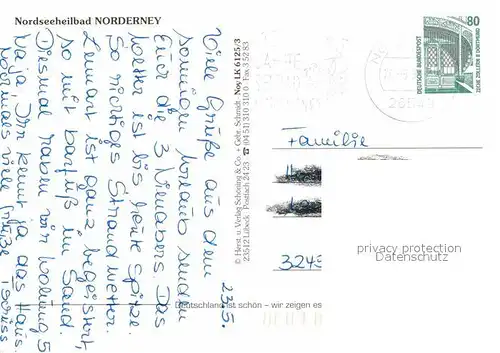 Nordseeheilbad NORDERNEY
23.5.
Viele Grüße aus dem
sonnigen Urlaub senden
Euch die 3 Niendbers. Das
Wetter ist bis heute Spitze.
So richtiges Strandwetter.
Lennart ist ganz begeistert,
so mit barfuß im Sand.
Diesmal haben wir Wohnung 5
Naja, Ihr kennt ja das Haus.
Nochmals viele Grüße Tschüss
© Herst. u. Verlag Schöning & Co. + Gebr. Schmidt
23512 Lübeck Postfach 24 23 ☎ (04 51) 310 310 Fax 3 52 83
Noy. LK 6125/3
Deutschland ist schön – wir zeigen es
80
DEUTSCHE BUNDESPOST
ZECHE ZOLLERN II DORTMUND
26548
Familie
324
privacy protection
Datenschutz